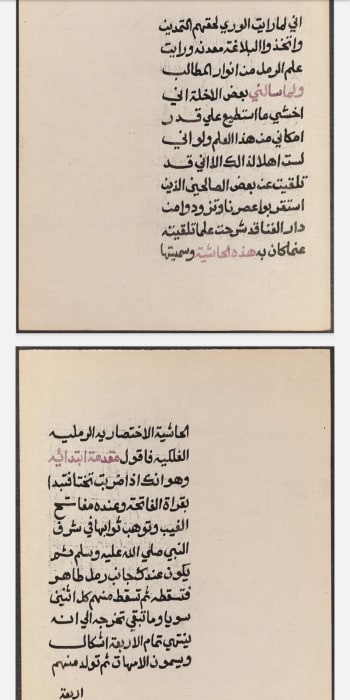 اني لما رايت الوري لحقهم التمدين
واتخذوا البلاغة معدنه ورايت
علم الرمل من انوار المطالب
ولما سالني بعض الاخلة اني
احشي ما استطيع علي قدر
امكاني من هذا العلم ولو اني
لست اهلا لذالك الا اني قد
تلقيت عن بعض الصالحين الذين
استقربوا عصرنا وتزودوا من
دار الفنا قد شرحت علما تلقيته
عنما كان به هذه الحاشية وسميتها
الحاشية الاختصاريه الرمليه
الفلكية فاقول مقدمة ابتدائيه
وهو انك اذا ضربت تختا فتبدا
بقراة الفاتحة وعنده مفاتح
الغيب وتوهب ثوابها في شرف
النبي صلي الله عليه وسلم ثم
يكون عندك جانب رمل طاهر
فتسقطه ثم تسقط منهم كل اثنين
سويا وما تبقي تخرجه الي انه
ينتهي تمام الاربعة اشكال
ويسمون الامهات ثم تولد منهم
اربعة